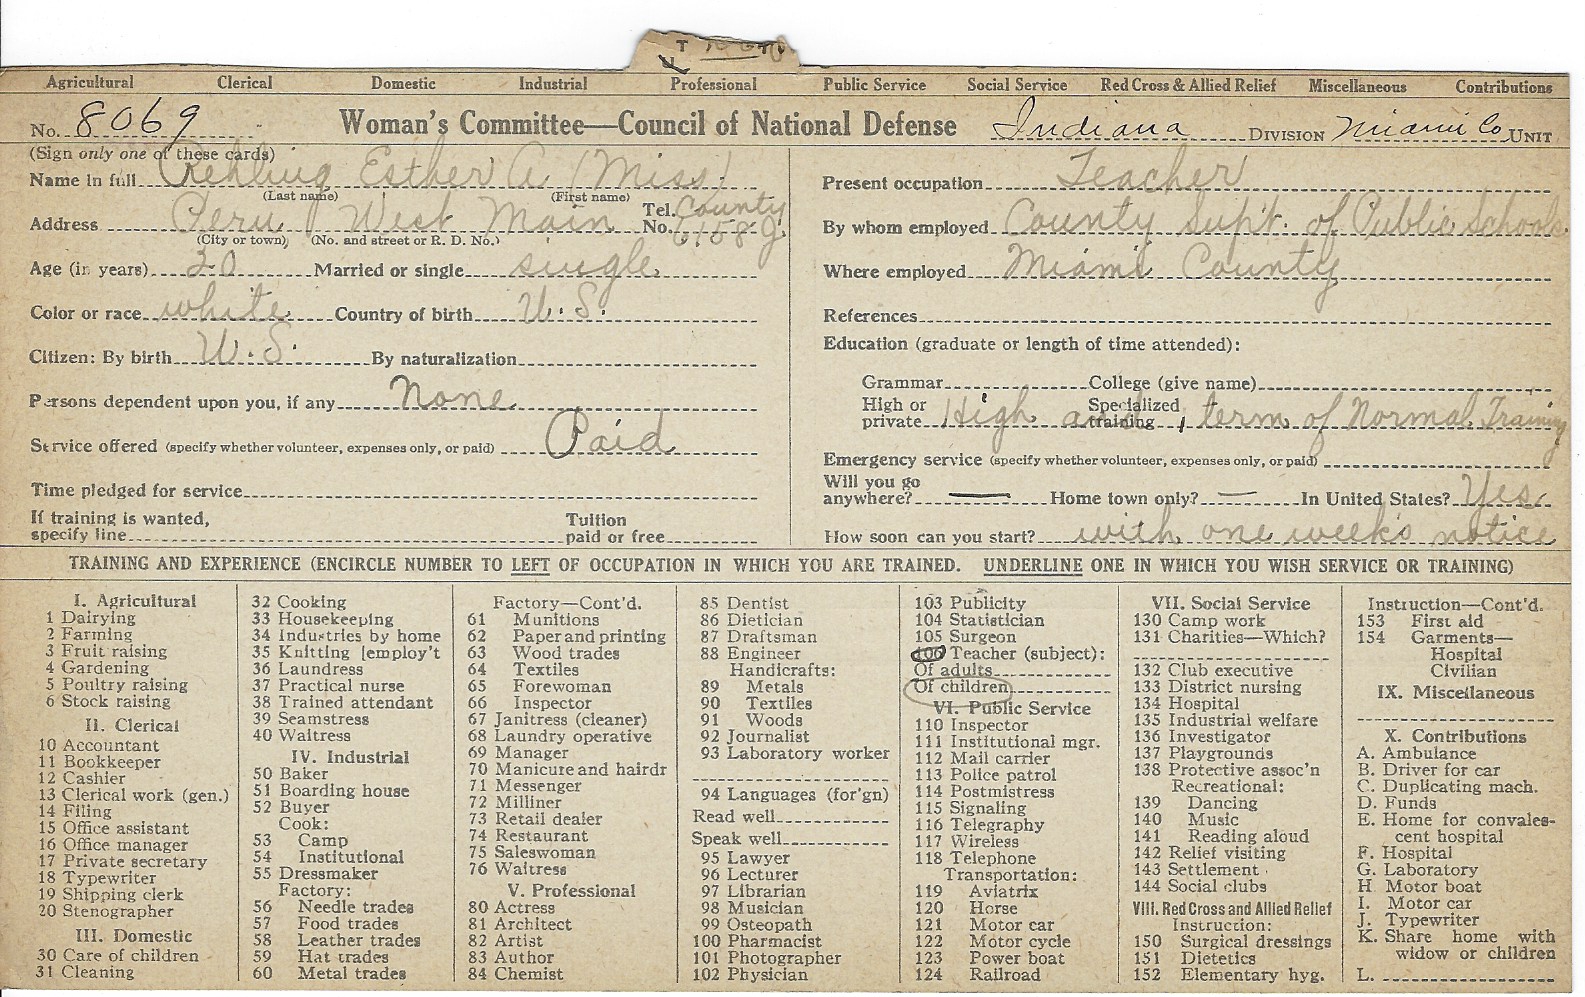 T
Agricultural Clerical Domestic Industrial Professional Public Service Social Service Red Cross & Allied Relief Miscellaneous Contributions
No. 8069 Woman's Committee—Council of National Defense Indiana DIVISION Miami Co UNIT
(Sign only one of these cards)
Name in full Rehling Esther A (Miss)
(Last name) (First name)
Address Peru West Main Tel. No. County 6158 J
(City or town) (No. and street or R. D. No.)
Age (in years) 20 Married or single single
Color or race white Country of birth U. S.
Citizen: By birth U. S. By naturalization
Persons dependent upon you, if any None
Service offered (specify whether volunteer, expenses only, or paid) Paid
Time pledged for service
If training is wanted, specify line Tuition paid or free
Present occupation Teacher
By whom employed County Supt. of Public Schools
Where employed Miami County
References
Education (graduate or length of time attended):
Grammar College (give name)
High or private High and Specialized training 1 term of Normal Training
Emergency service (specify whether volunteer, expenses only, or paid)
Will you go anywhere? — Home town only? — In United States? Yes
How soon can you start? with one week's notice
TRAINING AND EXPERIENCE (ENCIRCLE NUMBER TO LEFT OF OCCUPATION IN WHICH YOU ARE TRAINED. UNDERLINE ONE IN WHICH YOU WISH SERVICE OR TRAINING)
I. Agricultural
1 Dairying
2 Farming
3 Fruit raising
4 Gardening
5 Poultry raising
6 Stock raising
II. Clerical
10 Accountant
11 Bookkeeper
12 Cashier
13 Clerical work (gen.)
14 Filing
15 Office assistant
16 Office manager
17 Private secretary
18 Typewriter
19 Shipping clerk
20 Stenographer
III. Domestic
30 Care of children
31 Cleaning
32 Cooking
33 Housekeeping
34 Industries by home
35 Knitting [employ't
36 Laundress
37 Practical nurse
38 Trained attendant
39 Seamstress
40 Waitress
IV. Industrial
50 Baker
51 Boarding house
52 Buyer
Cook:
53 Camp
54 Institutional
55 Dressmaker
Factory:
56 Needle trades
57 Food trades
58 Leather trades
59 Hat trades
60 Metal trades
Factory—Cont'd.
61 Munitions
62 Paper and printing
63 Wood trades
64 Textiles
65 Forewoman
66 Inspector
67 Janitress (cleaner)
68 Laundry operative
69 Manager
70 Manicure and hairdr
71 Messenger
72 Milliner
73 Retail dealer
74 Restaurant
75 Saleswoman
76 Waitress
V. Professional
80 Actress
81 Architect
82 Artist
83 Author
84 Chemist
85 Dentist
86 Dietician
87 Draftsman
88 Engineer
Handicrafts:
89 Metals
90 Textiles
91 Woods
92 Journalist
93 Laboratory worker
94 Languages (for'gn)
Read well
Speak well
95 Lawyer
96 Lecturer
97 Librarian
98 Musician
99 Osteopath
100 Pharmacist
101 Photographer
102 Physician
103 Publicity
104 Statistician
105 Surgeon
106 Teacher (subject):
Of adults
Of children
VI. Public Service
110 Inspector
111 Institutional mgr.
112 Mail carrier
113 Police patrol
114 Postmistress
115 Signaling
116 Telegraphy
117 Wireless
118 Telephone
Transportation:
119 Aviatrix
120 Horse
121 Motor car
122 Motor cycle
123 Power boat
124 Railroad
VII. Social Service
130 Camp work
131 Charities—Which?
132 Club executive
133 District nursing
134 Hospital
135 Industrial welfare
136 Investigator
137 Playgrounds
138 Protective assoc'n
Recreational:
139 Dancing
140 Music
141 Reading aloud
142 Relief visiting
143 Settlement
144 Social clubs
VIII. Red Cross and Allied Relief
Instruction:
150 Surgical dressings
151 Dietetics
152 Elementary hyg.
Instruction—Cont'd.
153 First aid
154 Garments—
Hospital
Civilian
IX. Miscellaneous
X. Contributions
A. Ambulance
B. Driver for car
C. Duplicating mach.
D. Funds
E. Home for convales-
cent hospital
F. Hospital
G. Laboratory
H Motor boat
I. Motor car
J. Typewriter
K. Share home with
widow or children
L.